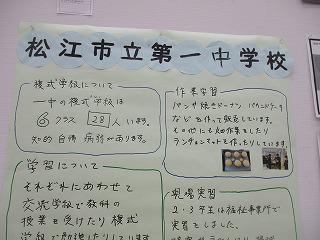 松江市立第一中学校
複式学校について
一中の複式学校は
⑥クラス 28人います。
知的 自情 病弱があります。
作業学習
パンや焼きドーナツ パウンドケーキ
などを作って販売しています。
その他にも知作業をしたり
ランチョンマットを作ったりしています。
学習について
それぞれにあわせて
交流学校で教科の
授業を受けたり複式
学校で勉強したりしています
現場実習
2・3年生は福祉事業所で
実習をしました。